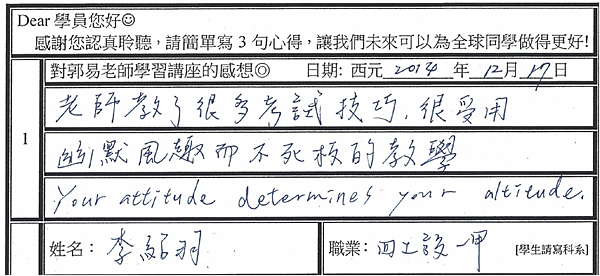 Dear 學員您好☺
感謝您認真聆聽，請簡單寫 3 句心得，讓我們未來可以為全球同學做得更好!
1
對郭易老師學習講座的感想◎ 日期: 西元 2014 年 12 月 17 日
老師教了很多考試技巧,很受用
幽默風趣而不死板的教學
Your attitude determines your altitude.
姓名： 李紹羽 職業: 四工設一甲 [學生請寫科系]